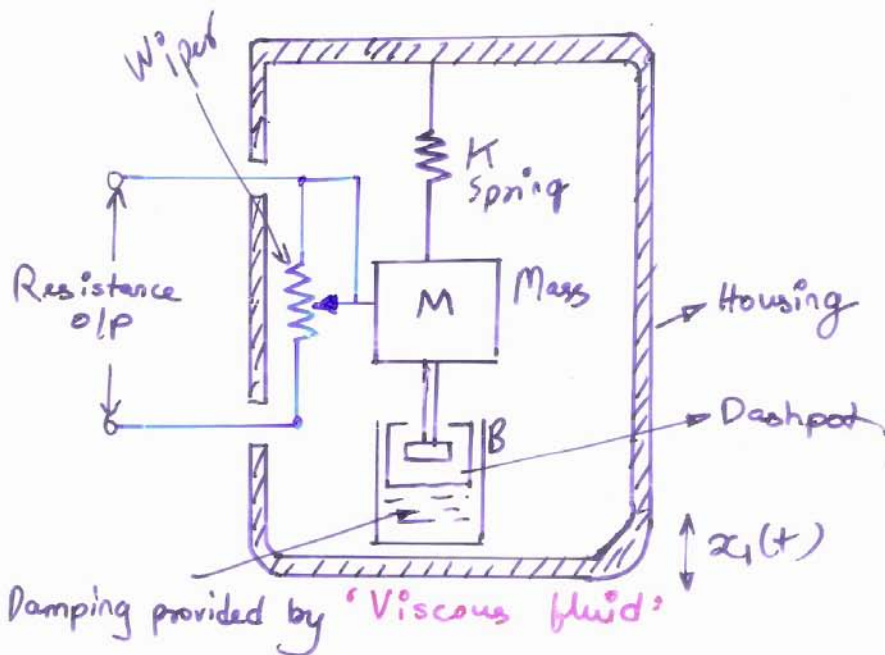 Wiper
K
Spring
Resistance
O/P
M
Mass
Housing
B
Dashpot
x₁(t)
Damping provided by 'Viscous fluid'